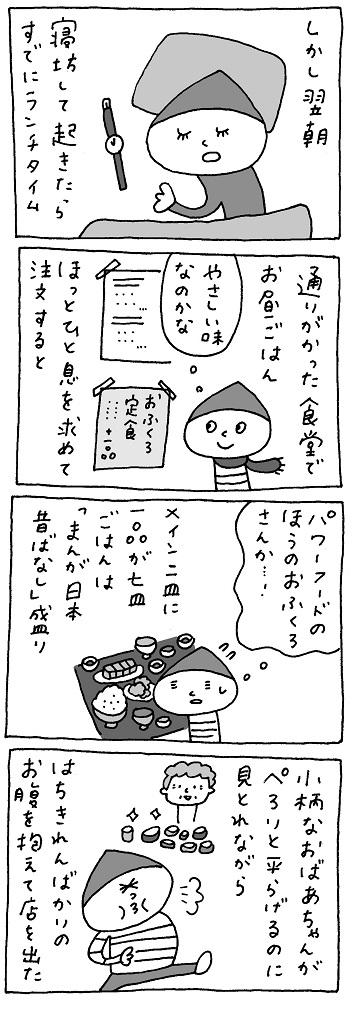 しかし翌朝
寝坊して起きたら
すでにランチタイム
通りがかった食堂で
お昼ごはん
やさしい味
なのかな
ほっとひと息を求めて
注文すると
おふくろ
定食
パワーフードの
ほうのおふくろ
さんか…!
メイン二皿に
一〇〇が七皿
ごはんは
「まんが日本
昔ばなし」盛り
小柄なおばあちゃんが
ぺろりと平らげるのに
見とれながら
はちきれんばかりの
お腹を抱えて店を出た